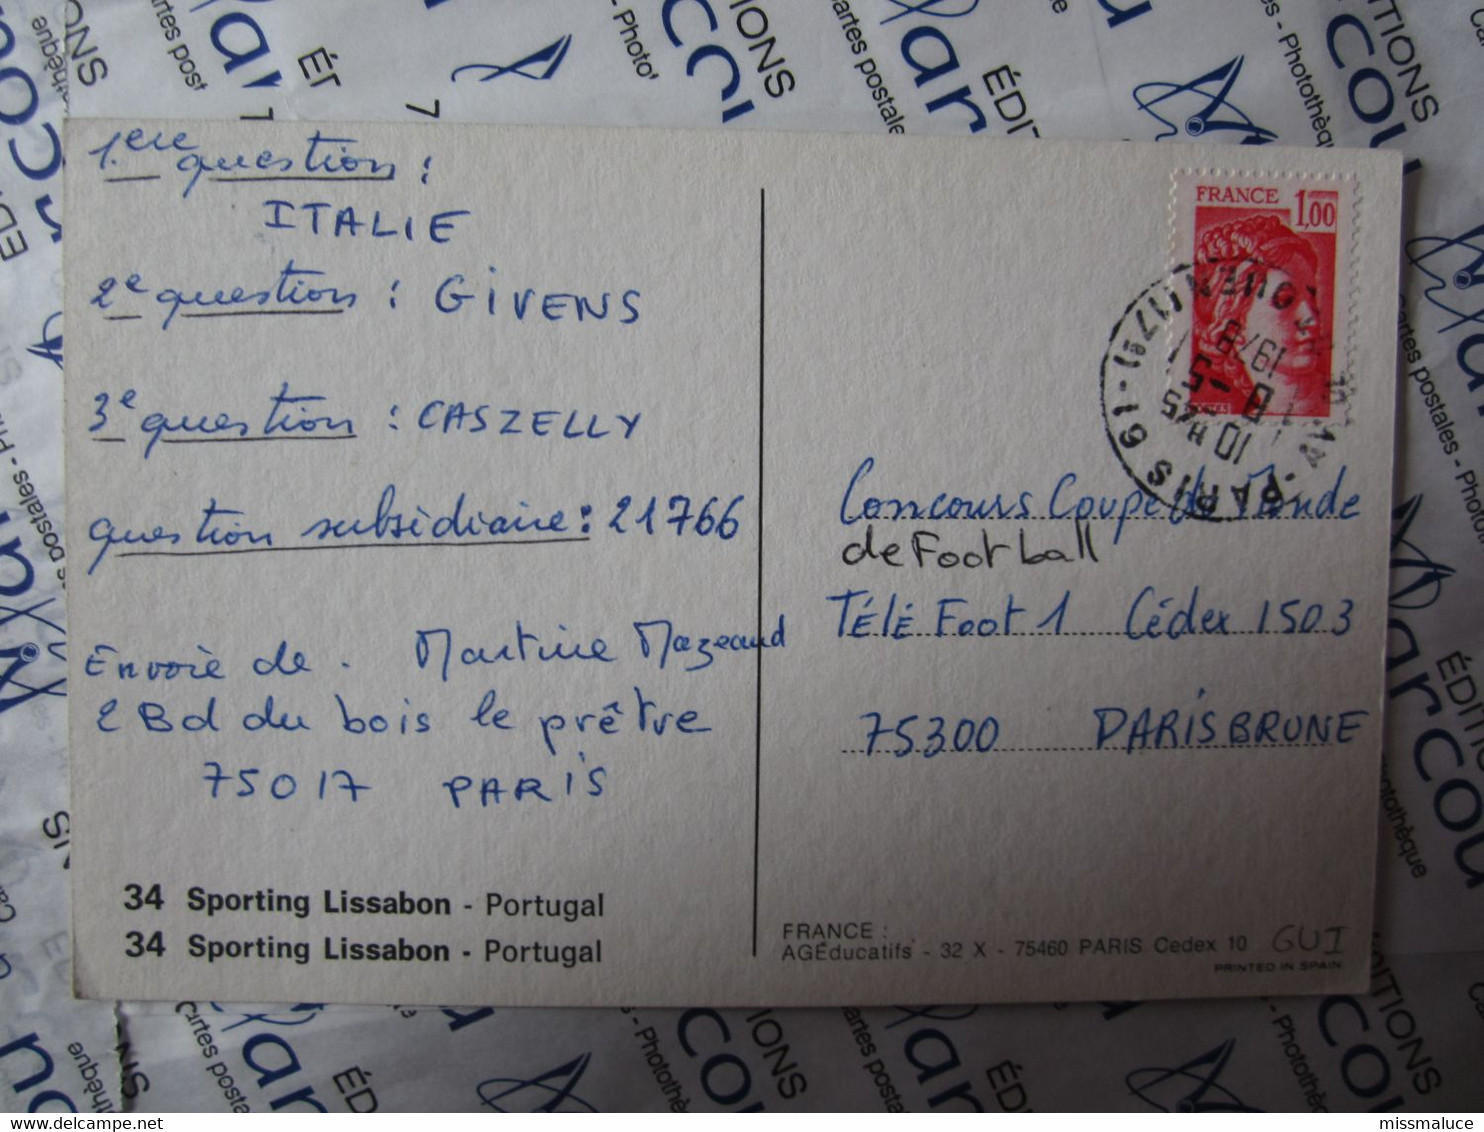 1.ere question :
ITALIE
2e question : GIVENS
3e question : CASZELLY
question subsidiaire : 21766
Envoie de . Martine Mazeaud
2 Bd du bois le prêtre
75017 PARIS
34 Sporting Lissabon - Portugal
34 Sporting Lissabon - Portugal
FRANCE 1,00
PARIS 61
10 H 45
8 -5
1978
Concours Coupe du Monde
de Football
TÉLÉ Foot 1 Cédex 1503
75300 PARIS BRUNE
FRANCE :
AGÉducatifs - 32 X - 75460 PARIS Cedex 10 GUI
PRINTED IN SPAIN
missmaluce